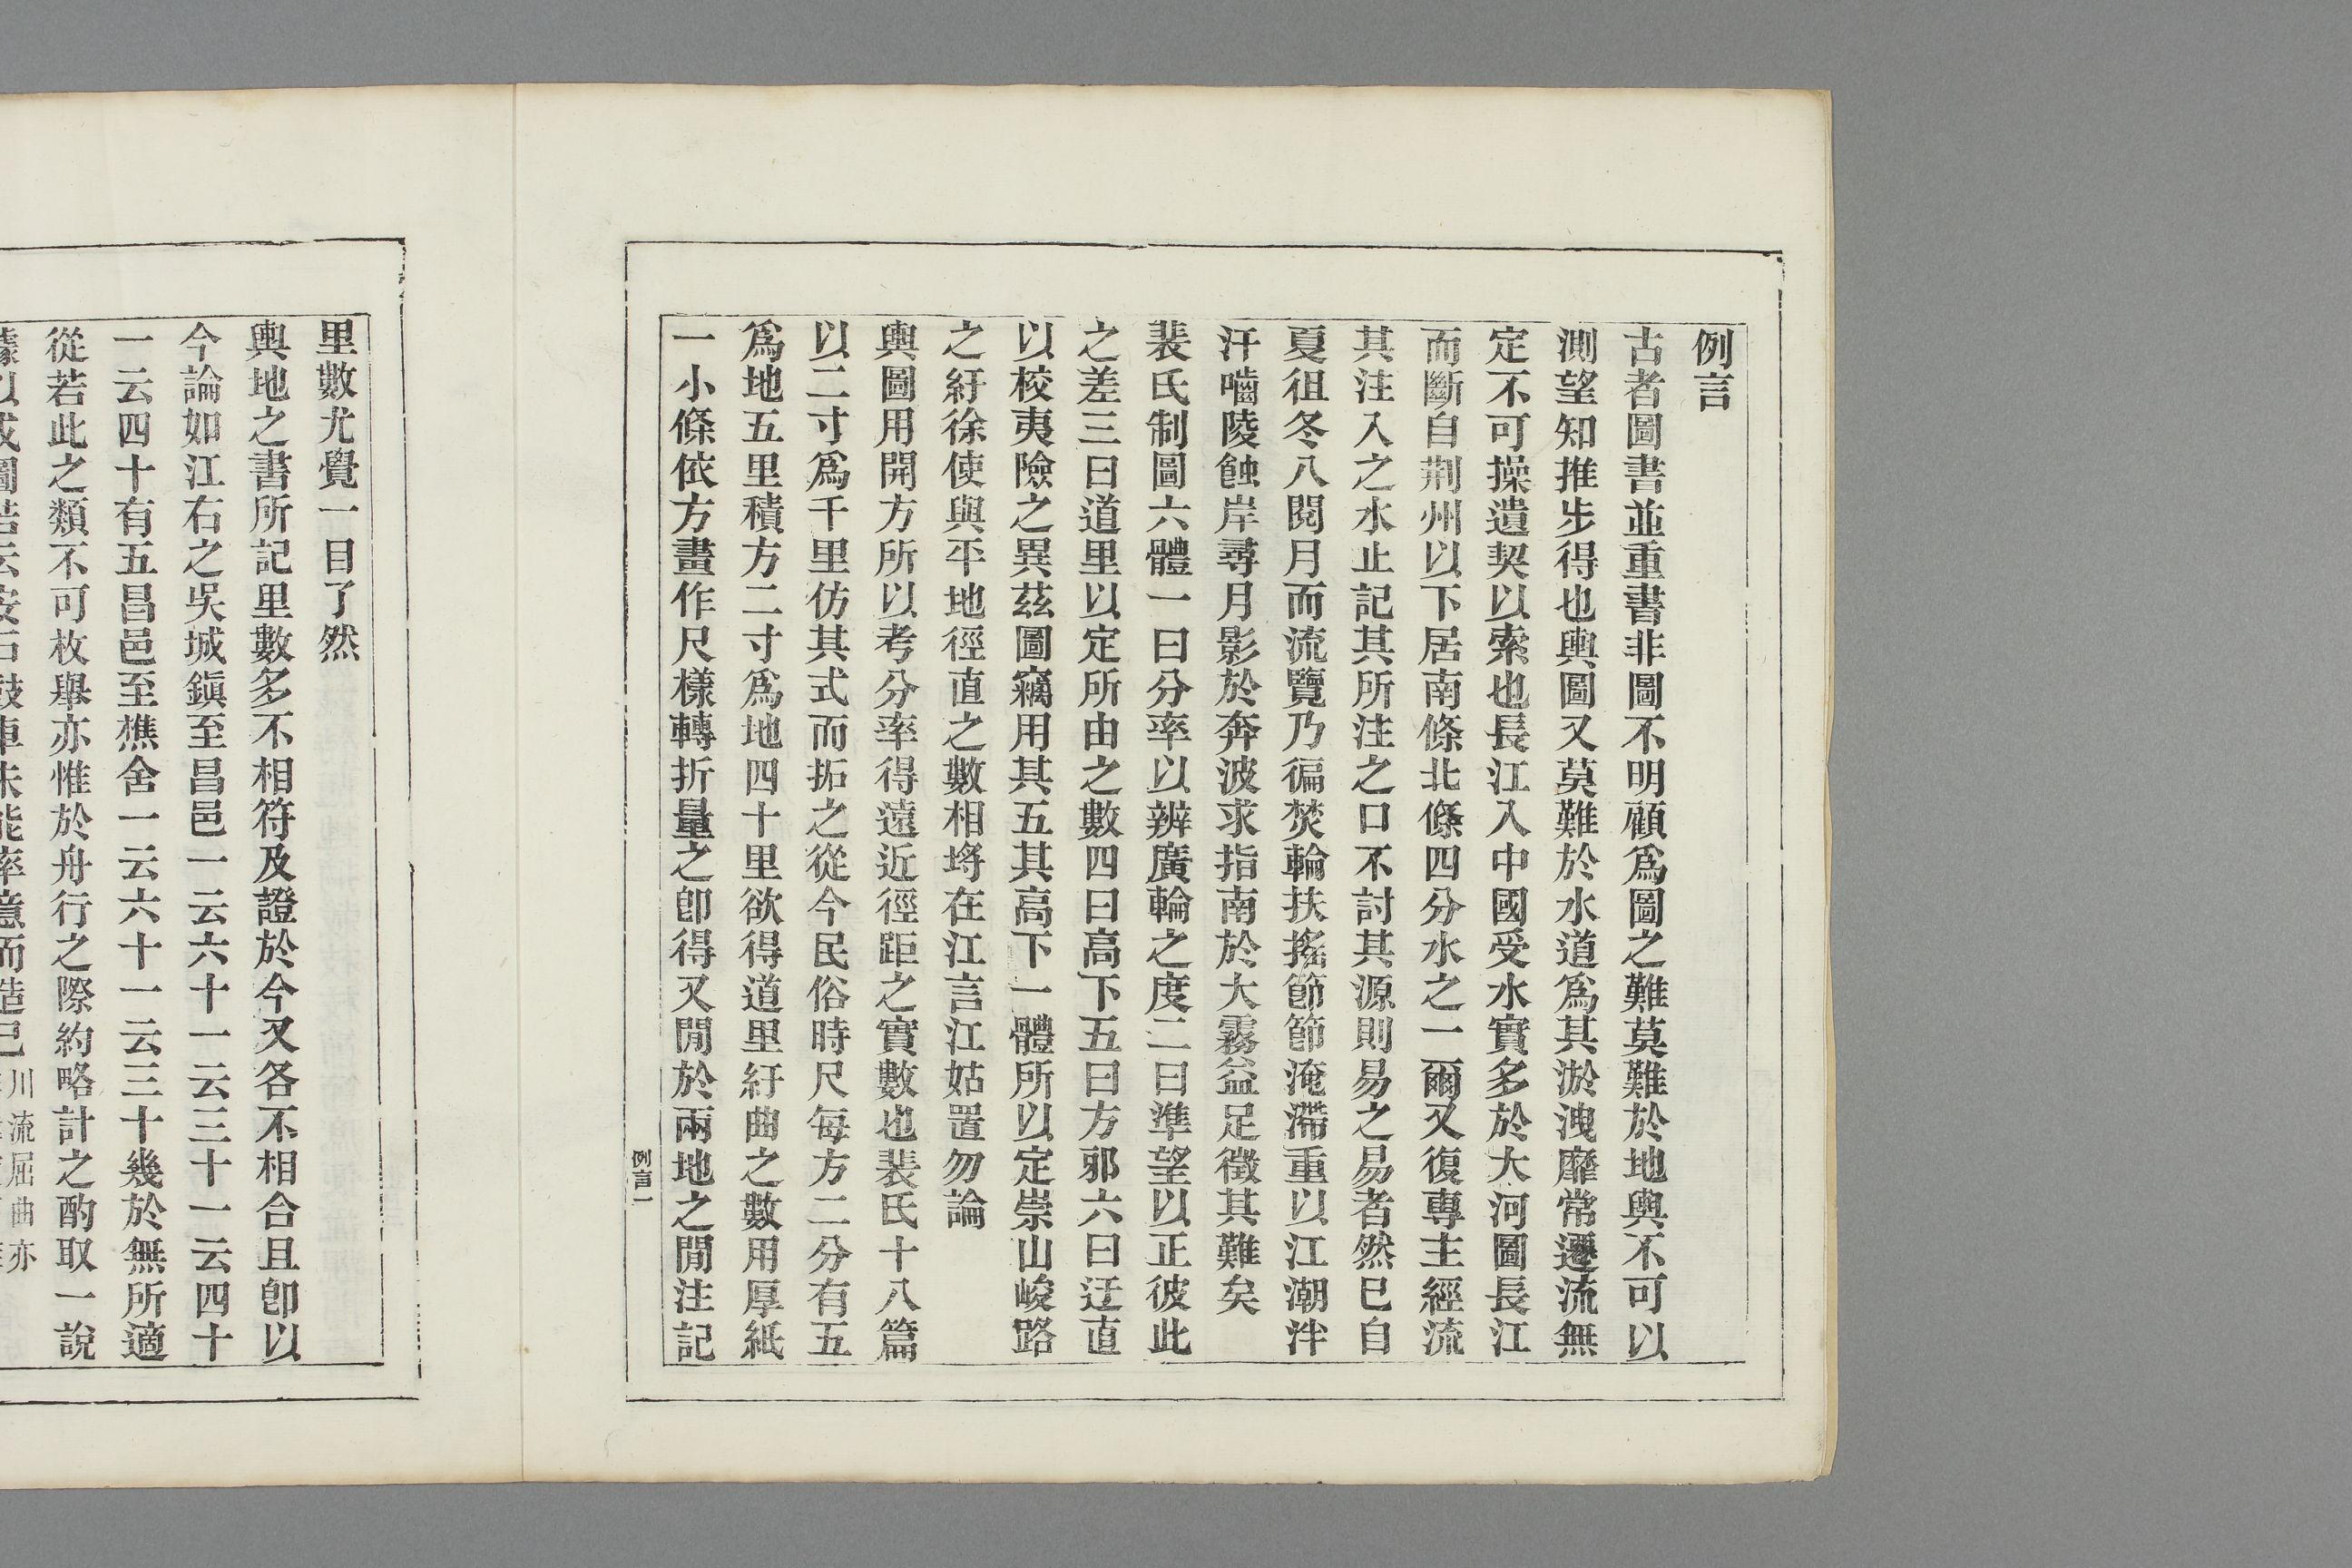 例言
古者圖書並重書非圖不明顧爲圖之難莫難於地輿不可以
測望知推步得也輿圖又莫難於水道爲其淤洩靡常遷流無
定不可操遺契以索也長江入中國受水實多於大河圖長江
而斷自荆州以下居南條北條四分水之一爾又復專主經流
其注入之水止記其所注之口不討其源則易之易者然已自
夏徂冬八閱月而流覽乃徧焚輪扶搖節節淹滯重以江潮泮
汗嚙陵蝕岸尋月影於奔波求指南於大霧益足徵其難矣
裴氏制圖六體一曰分率以辨廣輪之度二曰準望以正彼此
之差三曰道里以定所由之數四曰高下五曰方邪六曰迂直
以校夷險之異茲圖竊用其五其高下一體所以定崇山峻路
之紆徐使與平地徑直之數相埓在江言江姑置勿論
輿圖用開方所以考分率得遠近徑距之實數也裴氏十八篇
以二寸爲千里仿其式而拓之從今民俗時尺每方二分有五
爲地五里積方二寸爲地四十里欲得道里紆曲之數用厚紙
一小條依方畫作尺樣轉折量之卽得又閒於兩地之閒注記
例言一
里數尤覺一目了然
輿地之書所記里數多不相符及證於今又各不相合且卽以
今論如江右之吳城鎭至昌邑一云六十一云三十一云四十
一云四十有五昌邑至樵舍一云六十一云三十幾於無所適
從若此之類不可枚舉亦惟於舟行之際約略計之酌取一說
據以成圖若云
川流屈曲亦